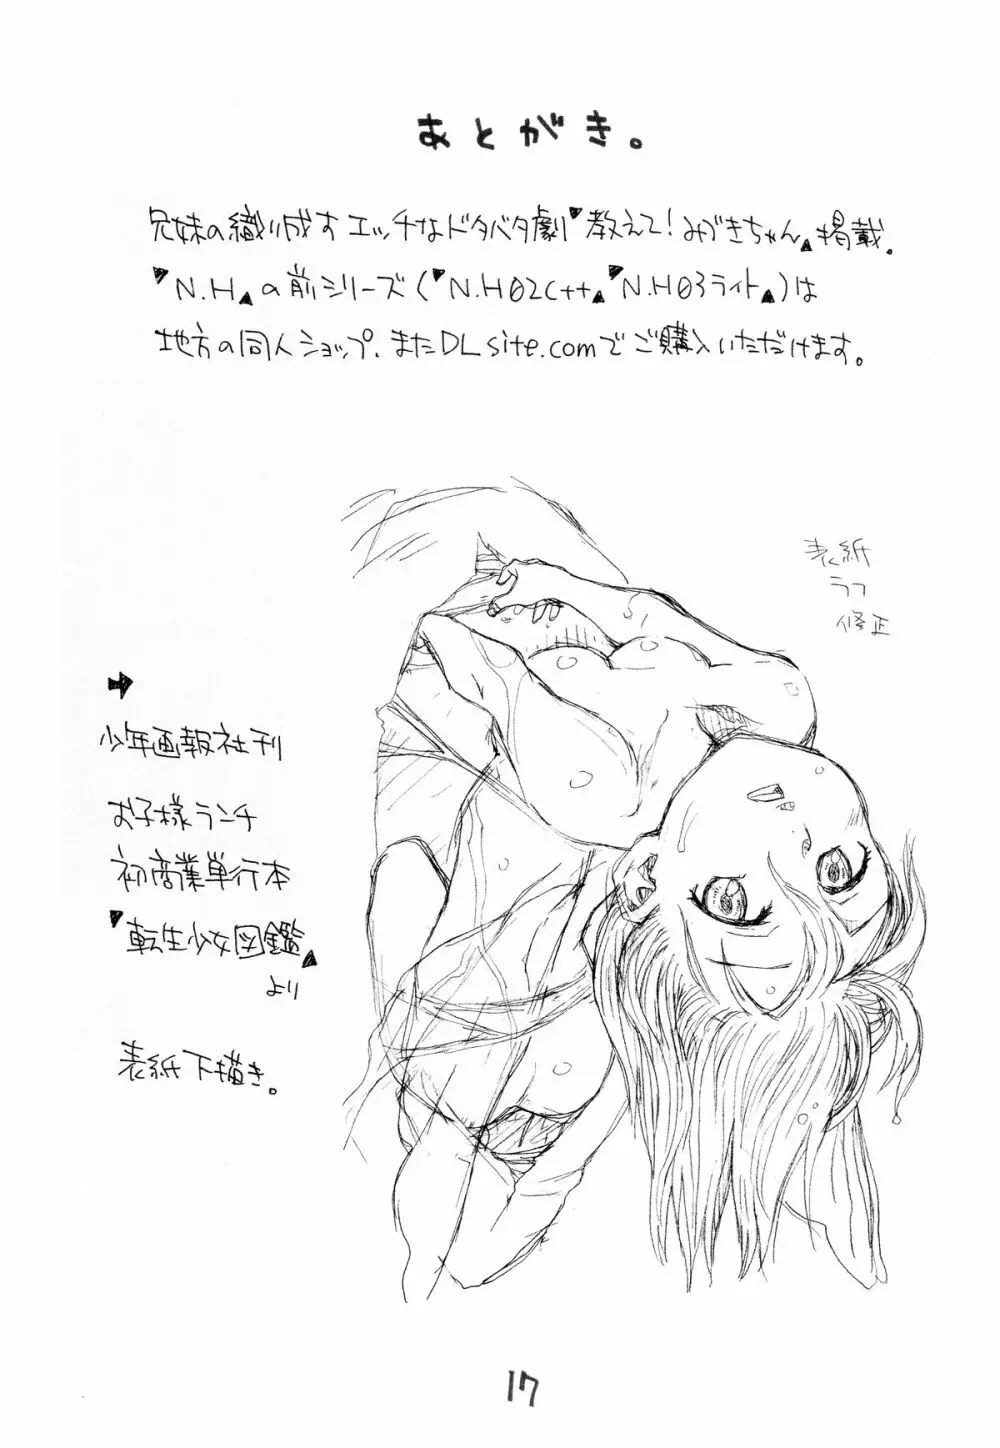 あとがき。
兄妹の織り成すエッチなドタバタ劇『教えて!みづきちゃん』掲載。
『N.H』の前シリーズ(『N.H02C++』『N.H03ライト』)は
地方の同人ショップ、またDLsite.comでご購入いただけます。
表紙
ラフ
修正
➡
少年画報社刊
お子様ランチ
初商業単行本
『転生少女図鑑』
より
表紙下描き。
17